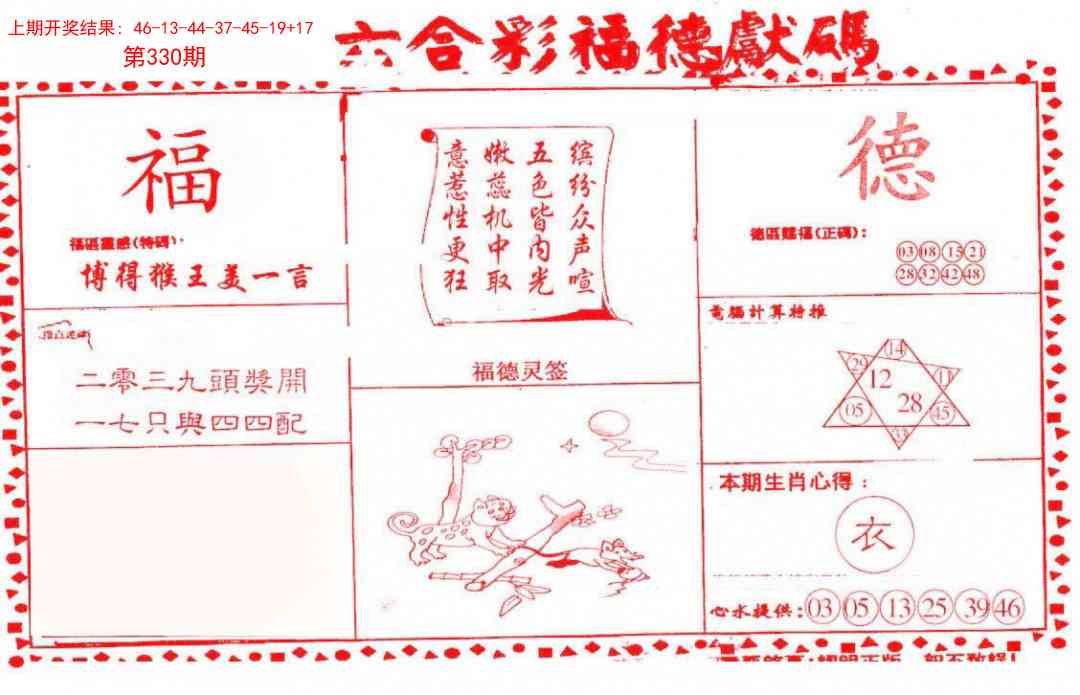 上期开奖结果：46-13-44-37-45-19+17
第330期
六合彩福德獻碼
福
福區靈感(特碼)：
博得猴王美一言
二零三九頭獎開
一七只與四四配
缤纷众声喧
五色皆内光
嫩蕊机中取
意惹性更狂
福德灵签
德
德區賜福(正碼)：
03 08 15 21
28 32 42 48
電腦計算特推
14
29
12
11
05
28
45
本期生肖心得：
衣
心水提供：03 05 13 25 39 46